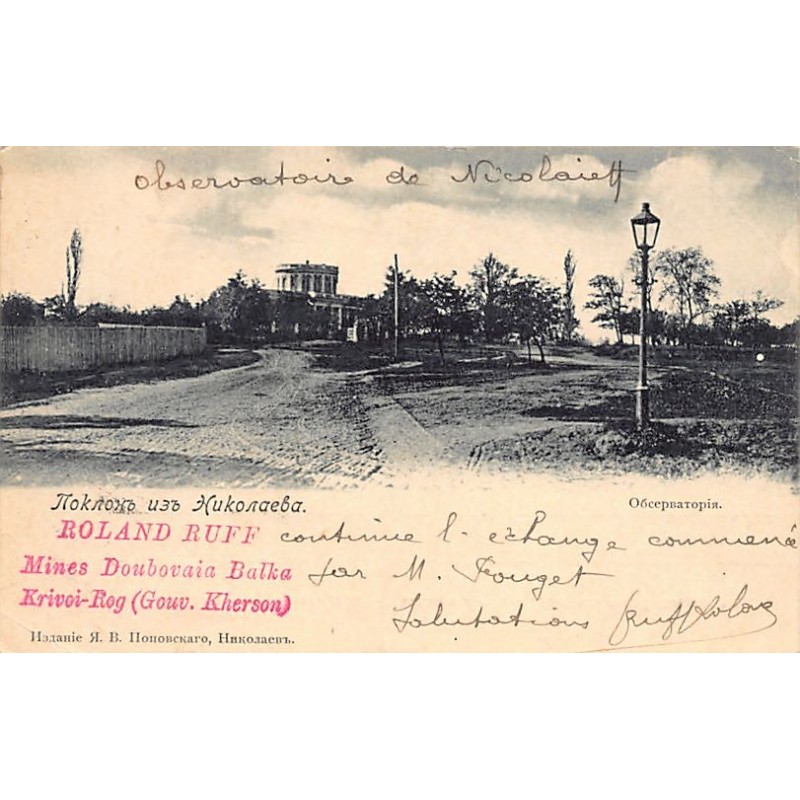 observatoire de Nicolaieff
Поклонъ изъ Николаева.
Обсерваторія.
ROLAND RUFF continue l'echange commencé
Mines Doubovaia Balka par M. Fouget
Krivoi-Rog (Gouv. Kherson) Salutations Ruff Roland
Изданіе Я. В. Поповскаго, Николаевъ.